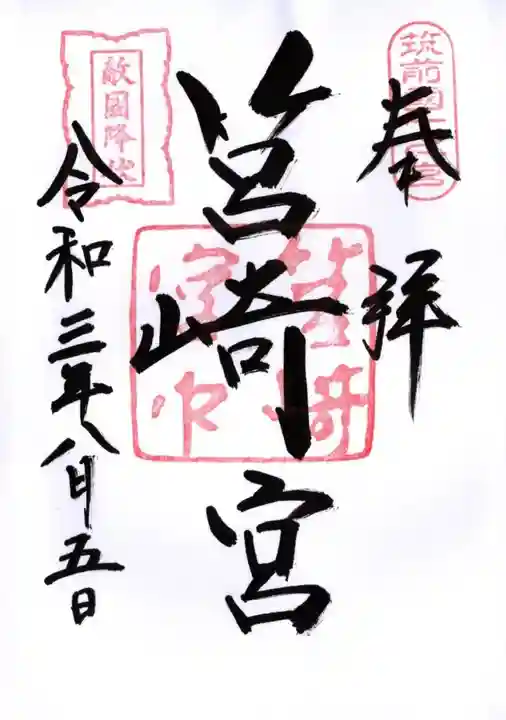 奉拝
筑前國一之宮
筥崎宮
筥崎宮印
敵國降伏
令和三年八月五日